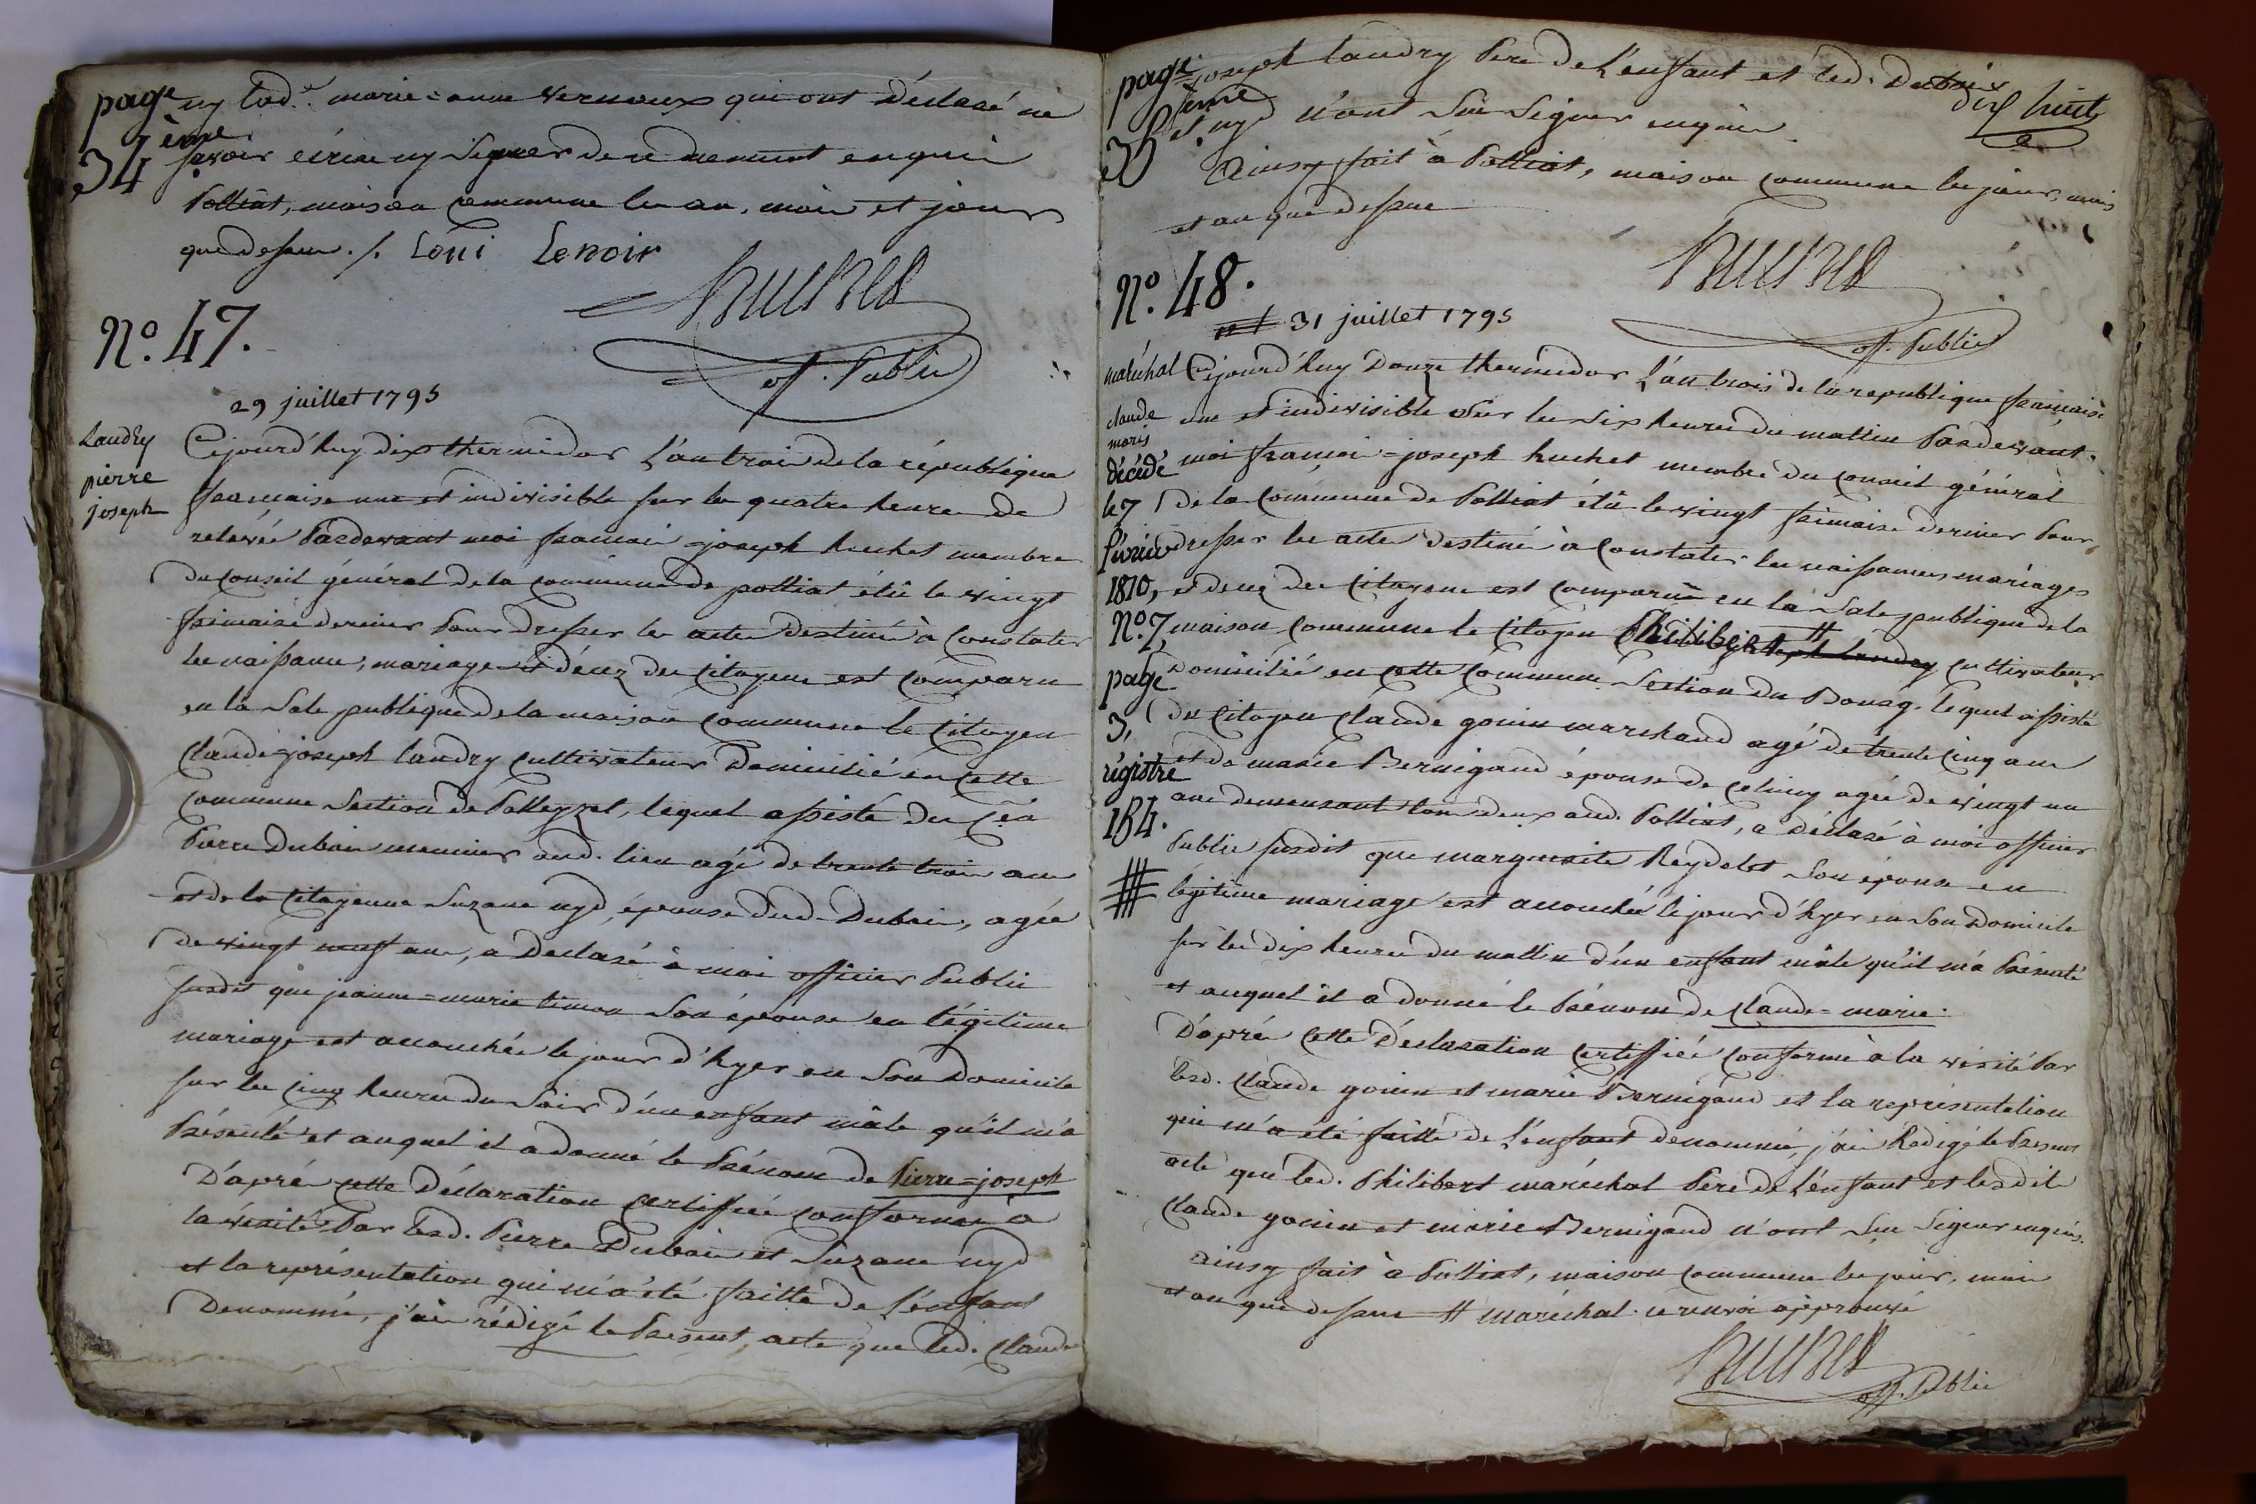 page
34
ème
ny lad.e marie=anne vernoux qui ont déclaré ne
savoir écrire ny signer de ce dement enquis
Polliat, maison commune les an, mois et jour
que dessus ./. Loui Lenoir
huchet
off. Public
N.o 47.
29 juillet 1795
Landry
pierre
joseph
Cejourd'huy dix thermidor l'an trois de la république
française une et indivisible sur les quatre heures de
relevée Pardevant moi françois=joseph huchet membre
du conseil général de la commune de polliat élû le vingt
frimaire dernier Pour dresser les actes destinés à constater
les naissances, mariages et décez des citoyens est comparu
en la sale publique de la maison commune le citoyen
Claude=joseph landry cultivateur domicilié en cette
commune section de Polleyzet, lequel assisté du Cen
Pierre Dubois meunier aud. lieu agé de trente trois ans
et de la citoyenne Suzane nyd, épouse dud. Dubois, agée
de vingt neuf ans, a déclaré à moi officier Public
susdit que jeanne=marie timon son épouse en légitime
mariage est accouchée le jour d'hyer en son domicile
sur les cinq heures du soir d'un enfant mâle qu'il m'a
Présenté et auquel il a donné le Prénom de Pierre=joseph
D'après cette déclaration certiffiée conforme à
la vérité Par lesd. Pierre Dubois et Suzane nyd
et la représentation qui m'a été faitte de l'enfant
denommé, j'ai rédigé le Present, acte que led. Claude
page
ème
35
joseph landry Pere de l'enfant et led. Dubois
dix huit
et nyd n'ont sçu signer enquis
Ainsy fait à Polliat, maison commune les jour, mois
et an que dessus
huchet
off. Public
N.o 48.
31 juillet 1795
maréchal
claude
marie
décédé
le 7
février
1810,
N.o 7
page
3,
régistre
184.
Cejourd'huy Douze thermidor l'an trois de la republique française
une et indivisible sur les six heures du mattin Pardevant
moi françois=joseph huchet membre du conseil général
de la commune de Polliat élû le vingt frimaire dernier Pour
dresser les actes destinés à constater les naissances, mariages
et decez des citoyens est comparu en la sale publique de la
maison commune le citoyen Philibert # joseph landry cultivateur
domicilié en cette commune section du Bourg, lequel assisté
du citoyen Claude gonin marchand agé de trente cinq ans
et de marie Bernigaud épouse de celuicy agée de vingt un
ans demeurant tous deux aud. Polliat, a déclaré à moi officier
Public susdit que marguerite Reydelet son épouse en
légitime mariage est accouchée le jour d'hyer en son domicile
sur les dix heures du mattin d'un enfant mâle qu'il m'a Présenté
et auquel il a donné le Prénom de Claude=marie.
D'après cette déclaration certiffiée conforme à la vérité Par
lesd. Claude gonin et marie Bernigaud et la représentation
qui m'a été faitte de l'enfant denommé, j'ai Rédigé le Present
acte que led. Philibert maréchal Pere de l'enfant et lesdits
Claude gonin et marie Bernigaud n'ont sçu signer enquis.
ainsy fait à Polliat, maison commune les jour, mois
et an que dessus # maréchal ce renvoi approuvé
huchet
off. Public